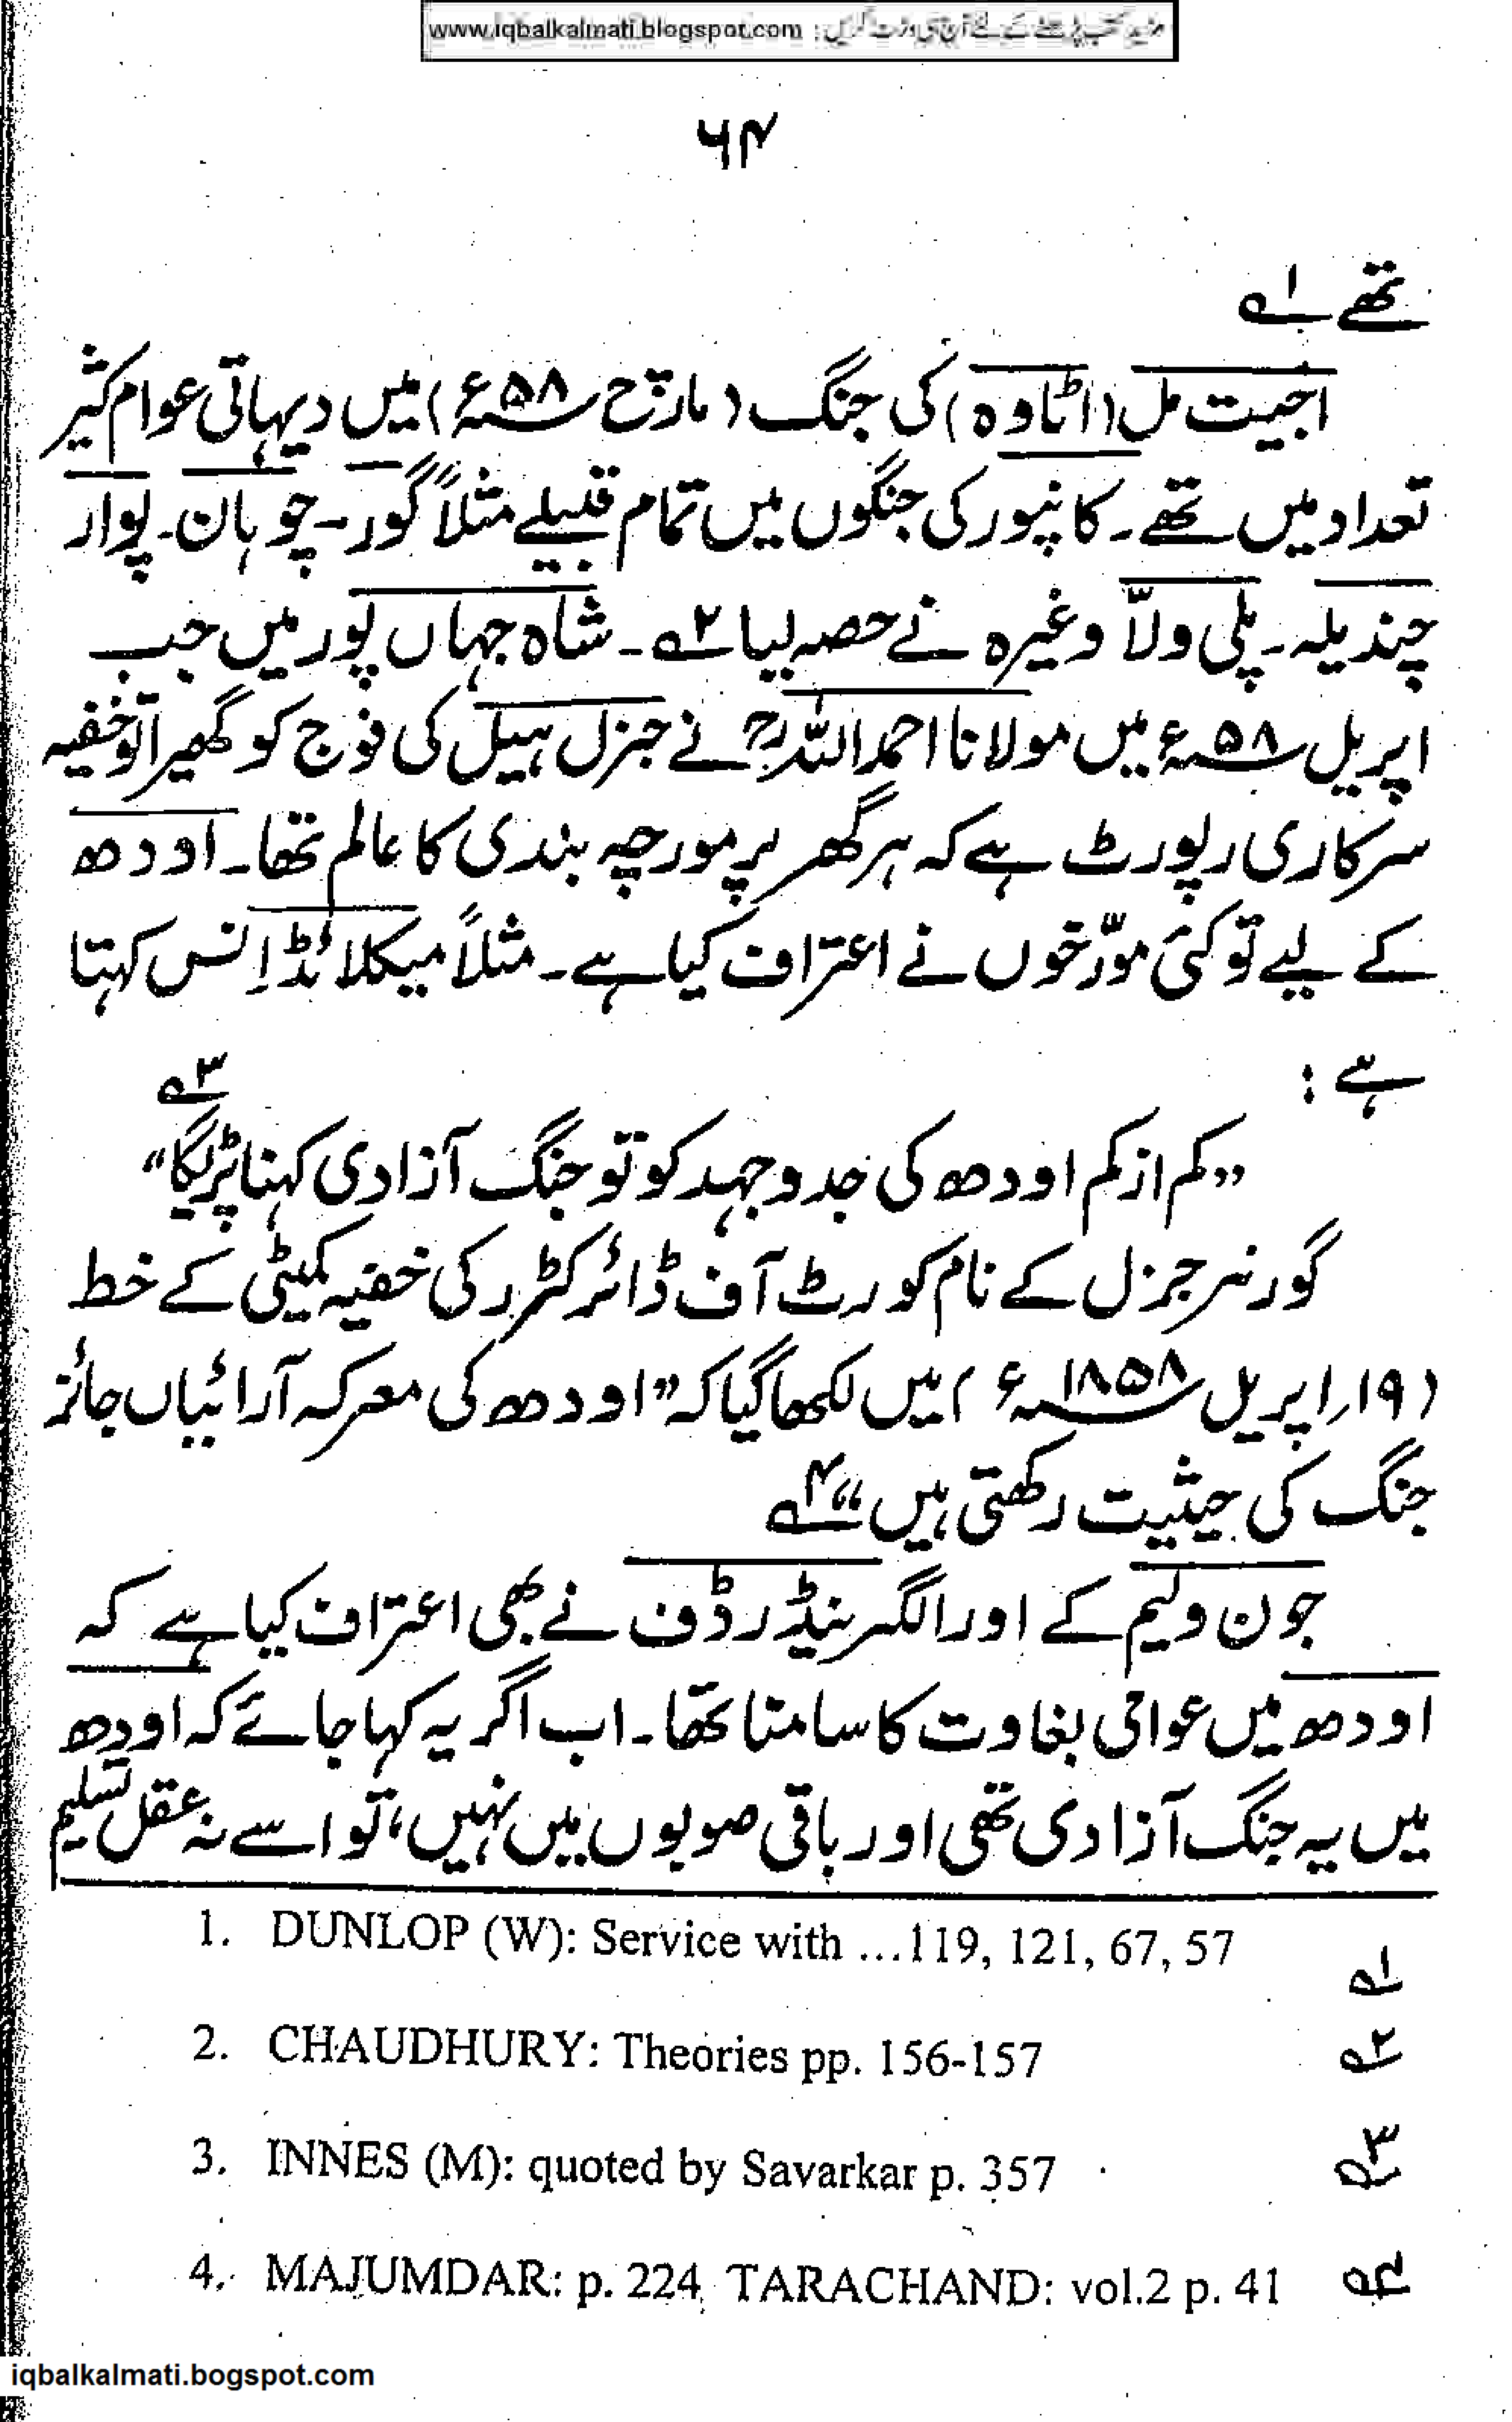 www.iqbalkalmati.blogspot.com : مزید کتب پڑھنے کے لئے آج ہی وزٹ کریں
۶۴
تھے ۱؎
اجیت مل (اٹاوہ) کی جنگ (مارچ ۵۸ء) میں دیہاتی عوام کثیر
تعداد میں تھے۔ کانپور کی جنگوں میں تمام قبیلے مثلاً گور۔ چوہان۔ پوار
چندیلہ۔ پلی ولاّ وغیرہ نے حصہ لیا ۲؎۔ شاہ جہاں پور میں جب
اپریل ۵۸ء میں مولانا احمد اللہؒ نے جنرل ہیل کی فوج کو گھیرا تو خفیہ
سرکاری رپورٹ ہے کہ ہر گھر پر مورچہ بندی کا عالم تھا۔ اودھ
کے لیے تو کئی مورّخوں نے اعتراف کیا ہے۔ مثلاً میکلائڈ اِنس کہتا
ہے :
”کم از کم اودھ کی جدوجہد کو تو جنگ آزادی کہنا پڑیگا“ ۳؎
گورنر جرنل کے نام کورٹ آف ڈائرکٹرر کی خفیہ کمیٹی کے خط
(۱۹؍ اپریل ۱۸۵۸ء) میں لکھا گیا کہ ”اودھ کی معرکہ آرائیاں جائز
جنگ کی حیثیت رکھتی ہیں“ ۴؎
جون ولیم کے اور الگزینڈر ڈف نے بھی اعتراف کیا ہے کہ
اودھ میں عوامی بغاوت کا سامنا تھا۔ اب اگر یہ کہا جائے کہ اودھ
میں یہ جنگ آزادی تھی اور باقی صوبوں میں نہیں، تو اسے نہ عقل تسلیم
1. DUNLOP (W): Service with ...119, 121, 67, 57 ۱؎
2. CHAUDHURY: Theories pp. 156-157 ۲؎
3. INNES (M): quoted by Savarkar p. 357 ۳؎
4. MAJUMDAR: p. 224, TARACHAND: vol.2 p. 41 ۴؎
iqbalkalmati.bogspot.com